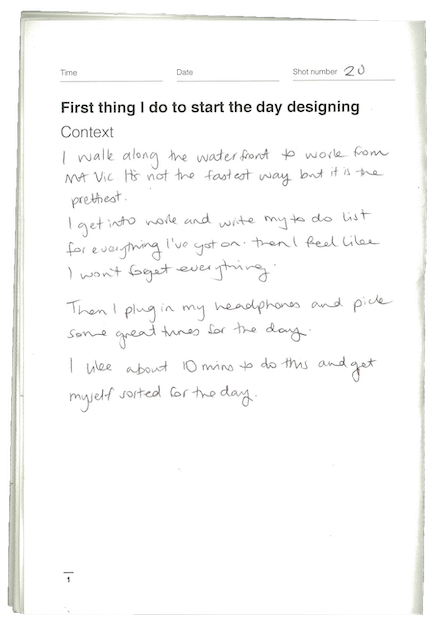 Time Date Shot number 20
First thing I do to start the day designing
Context
I walk along the waterfront to work from
Mt Vic It's not the fastest way but it is the
prettiest.
I get into work and write my to do list
for everything I've got on. then I feel like
I won't foget everything.
Then I plug in my headphones and pick
some great tunes for the day.
I like about 10 mins to do this and get
myself sorted for the day.
1